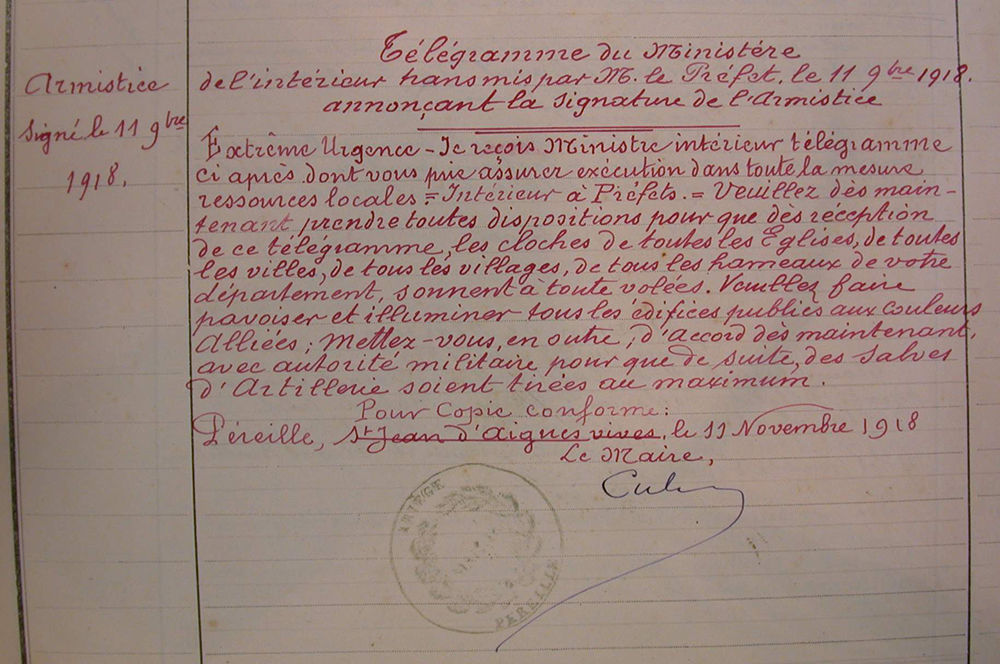 Armistice
signé le 11 9bre
1918.
Télégramme du Ministère
de l'intérieur transmis par M. le Préfet. le 11 9bre 1918.
annonçant la signature de l'Armistice
Extrême Urgence - Je reçois Ministre intérieur télégramme
ci après dont vous prie assurer exécution dans toute la mesure
ressources locales = Intérieur à Préfets. = Veuillez dès main-
tenant prendre toutes dispositions pour que dès réception
de ce télégramme, les cloches de toutes les Églises, de toutes
les villes, de tous les villages, de tous les hameaux de votre
département, sonnent à toute volées. Veuillez faire
pavoiser et illuminer tous les édifices publics aux couleurs
Alliées; Mettez-vous, en outre, d'accord dès maintenant,
avec autorité militaire pour que de suite, des salves
d'Artillerie soient tirées au maximum.
Pour Copie conforme:
Péreille, St Jean d'Aigues vives, le 11 Novembre 1918
Le Maire,
ARIÈGE
PEREILLE